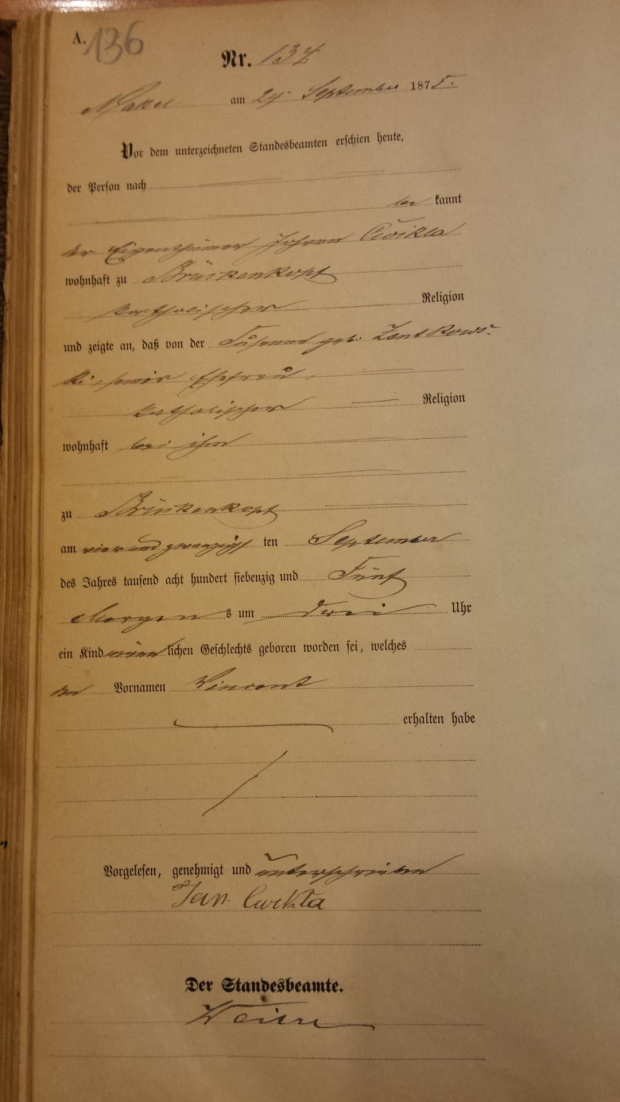 A. 136
Nr. 137
am 27. September 1875.
Vor dem unterzeichneten Standesbeamten erschien heute,
der Person nach
be kannt
der Eigenthümer Johann Cwikla
wohnhaft zu Brückenkopf
katholischer Religion
und zeigte an, daß von der geb.
seiner Ehefrau,
katholischer Religion
wohnhaft bei ihm
zu Brückenkopf
am vier und zwanzigs ten September
des Jahres tausend acht hundert siebenzig und Fünf
Morgen s um drei Uhr
ein Kind männ lichen Geschlechts geboren worden sei, welches
den Vornamen Vincent
erhalten habe
Vorgelesen, genehmigt und unterschrieben
Jan Cwikła
Der Standesbeamte.